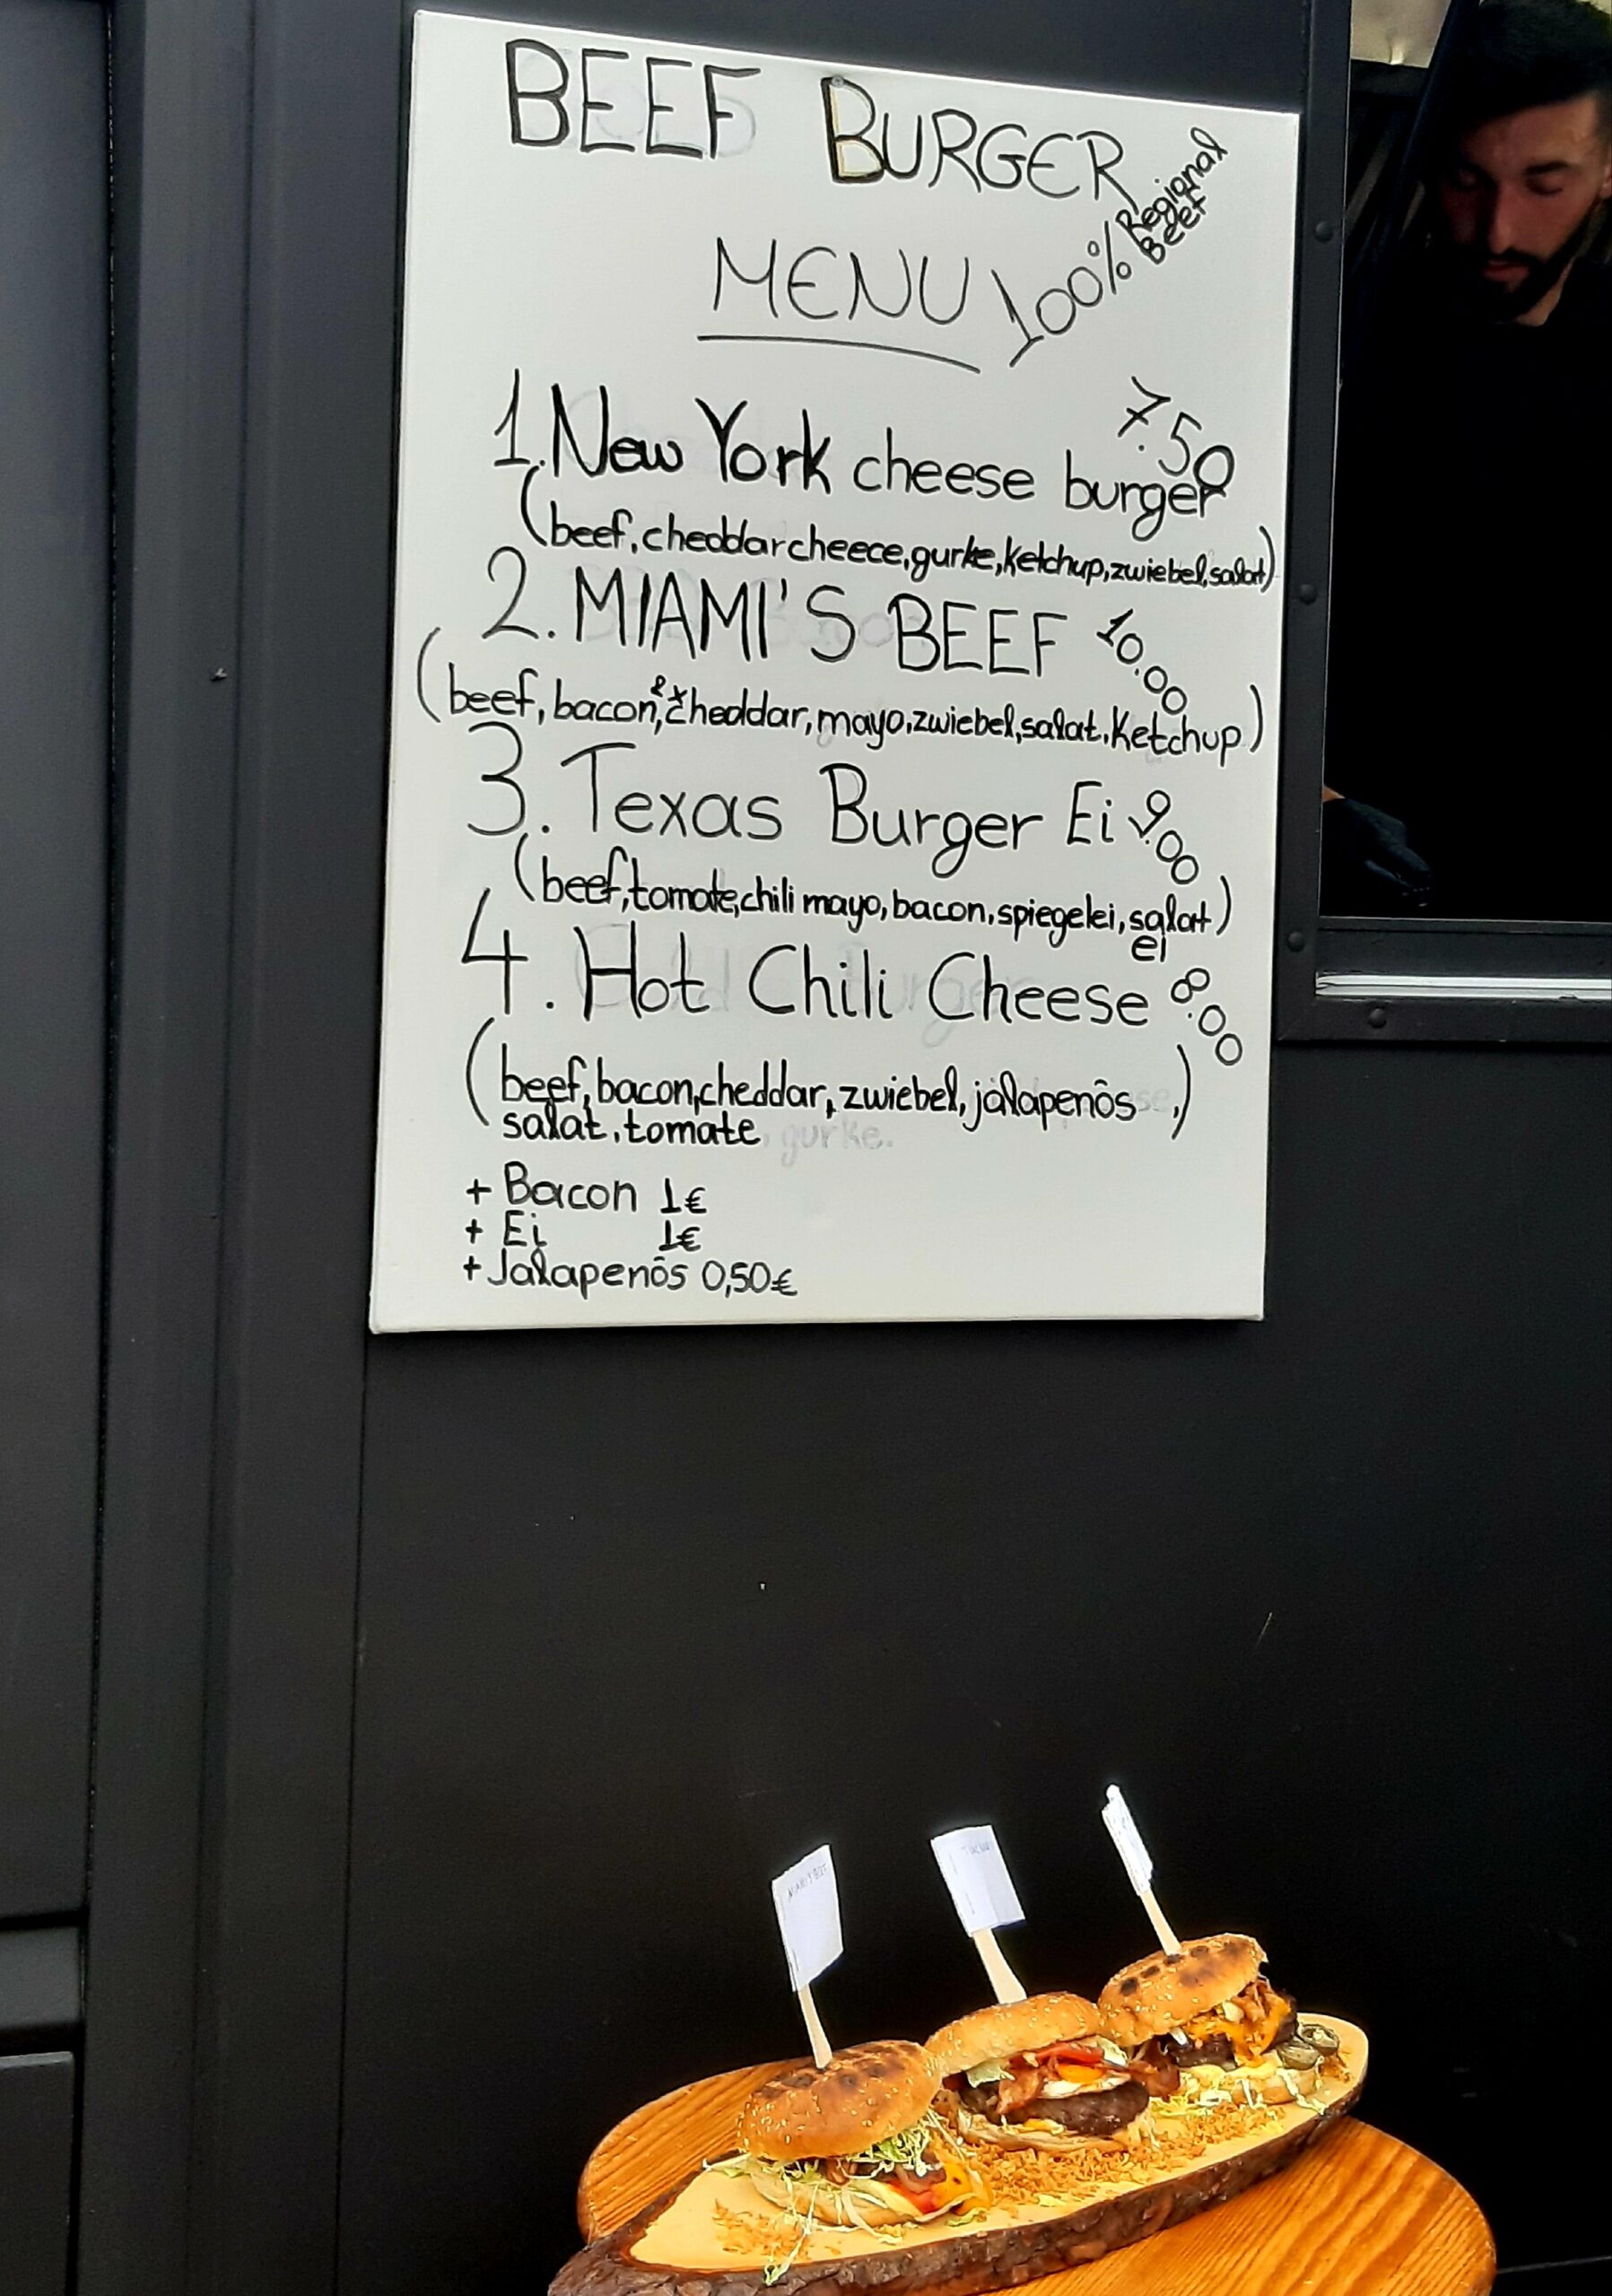 BEEF BURGER
MENU 100% Regional Beef
1. New York cheese burger 7.50
(beef, cheddar cheece, gurke, ketchup, zwiebel, salat)
2. MIAMI'S BEEF 10.00
(beef, bacon, cheddar, mayo, zwiebel, salat, Ketchup)
3. Texas Burger Ei 9.00
(beef, tomate, chili mayo, bacon, spiegelei, salat)
ei
4. Hot Chili Cheese 8.00
(beef, bacon, cheddar, zwiebel, jalapenõs,)
salat, tomate, gurke.
+ Bacon 1€
+ Ei 1€
+ Jalapenõs 0,50€
MIAMI'S BEEF